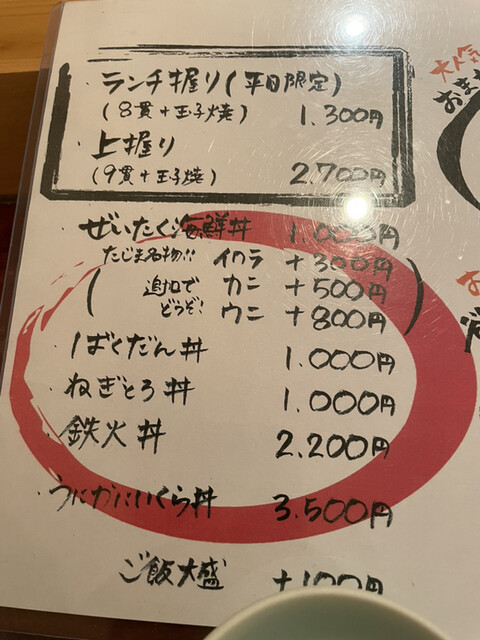 ・ランチ握り(平日限定)
(8貫+玉子焼) 1.300円
・上握り
(9貫+玉子焼) 2.700円
・ぜいたく海鮮丼 1.000円
たじま名物!! イクラ +300円
(追加で カニ +500円
どうぞ! ウニ +800円)
・ばくだん丼 1.000円
・ねぎとろ丼 1.000円
・鉄火丼 2.200円
・うにかにいくら丼 3.500円
ご飯大盛 +100円
大人気
おまか